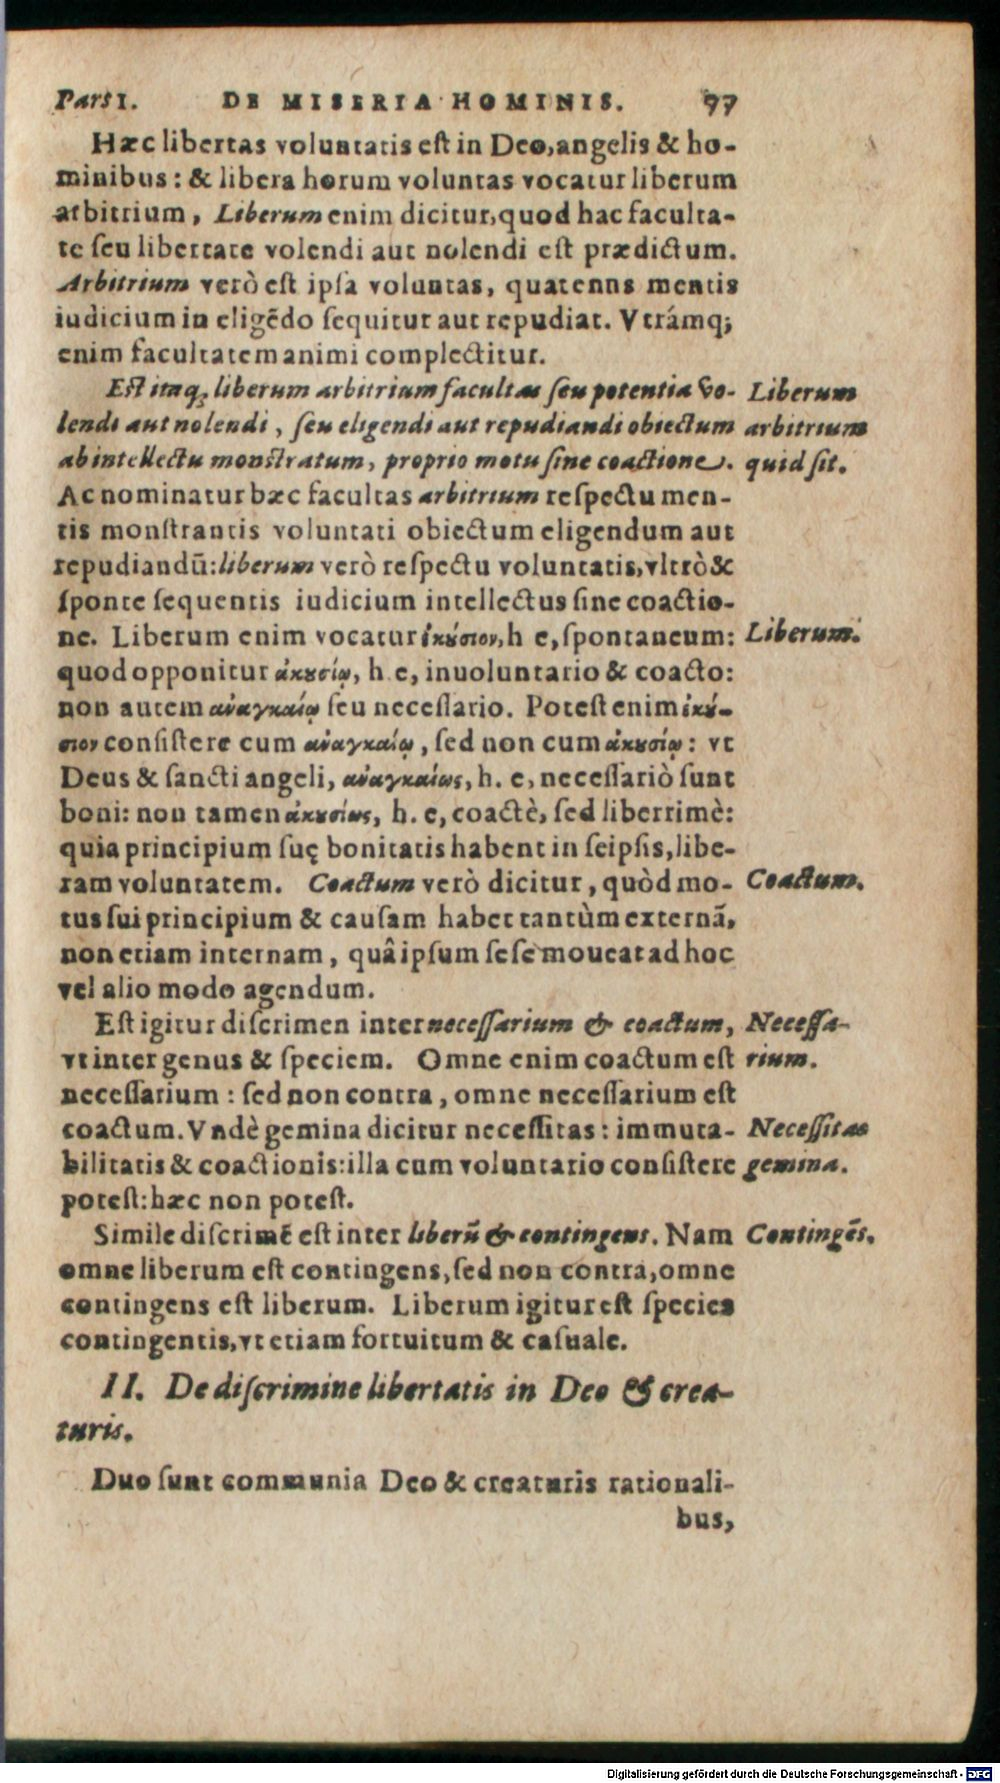 Pars I. DE MISERIA HOMINIS. 97
Hæc libertas voluntatis eſt in Deo, angelis & ho-
minibus: & libera horum voluntas vocatur liberum
arbitrium, Liberum enim dicitur, quod hac faculta-
te ſeu libertate volendi aut nolendi eſt prædictum.
Arbitrium verò eſt ipſa voluntas, quatenns mentis
iudicium in eligẽdo ſequitur aut repudiat. Vtrámq;
enim facultatem animi complectitur.
Eſt itaq; liberum arbitrium facultas ſeu potentia vo- Liberum
lendi aut nolendi, ſeu eligendi aut repudiandi obiectum arbitrium
ab intellectu monſtratum, proprio motu ſine coactione. quid ſit.
Ac nominatur hæc facultas arbitrium reſpectu men-
tis monſtrantis voluntati obiectum eligendum aut
repudiandũ: liberum verò reſpectu voluntatis, vltrò &
ſponte ſequentis iudicium intellectus ſine coactio-
ne. Liberum enim vocatur ἑκύσιον, h e, ſpontaneum: Liberum.
quod opponitur ἀκȣσίῳ, h. e, inuoluntario & coacto:
non autem ἀναγκαίῳ ſeu neceſſario. Poteſt enim ἑκύ-
σιον conſiſtere cum ἀναγκαίῳ, ſed non cum ἀκȣσίῳ: vt
Deus & ſancti angeli, ἀναγκαίως, h. e, neceſſariò ſunt
boni: non tamen ἀκȣσίως, h. e, coactè, ſed liberrimè:
quia principium ſuę bonitatis habent in ſeipſis, libe-
ram voluntatem. Coactum verò dicitur, quòd mo- Coactum.
tus ſui principium & cauſam habet tantùm externã,
non etiam internam, quâ ipſum ſeſe moueat ad hoc
vel alio modo agendum.
Eſt igitur diſcrimen inter neceſſarium & coactum, Neceſſa-
vt inter genus & ſpeciem. Omne enim coactum eſt rium.
neceſſarium: ſed non contra, omne neceſſarium eſt
coactum. Vndè gemina dicitur neceſſitas: immuta- Neceſſitas
bilitatis & coactionis: illa cum voluntario conſiſtere gemina.
poteſt: hæc non poteſt.
Simile diſcrimẽ eſt inter liberũ & contingens. Nam Contingẽs.
omne liberum eſt contingens, ſed non contra, omne
contingens eſt liberum. Liberum igitur eſt ſpecies
contingentis, vt etiam fortuitum & caſuale.
II. De diſcrimine libertatis in Deo & crea-
turis.
Duo ſunt communia Deo & creaturis rationali-
bus,
Digitalisierung gefördert durch die Deutsche Forschungsgemeinschaft - DFG